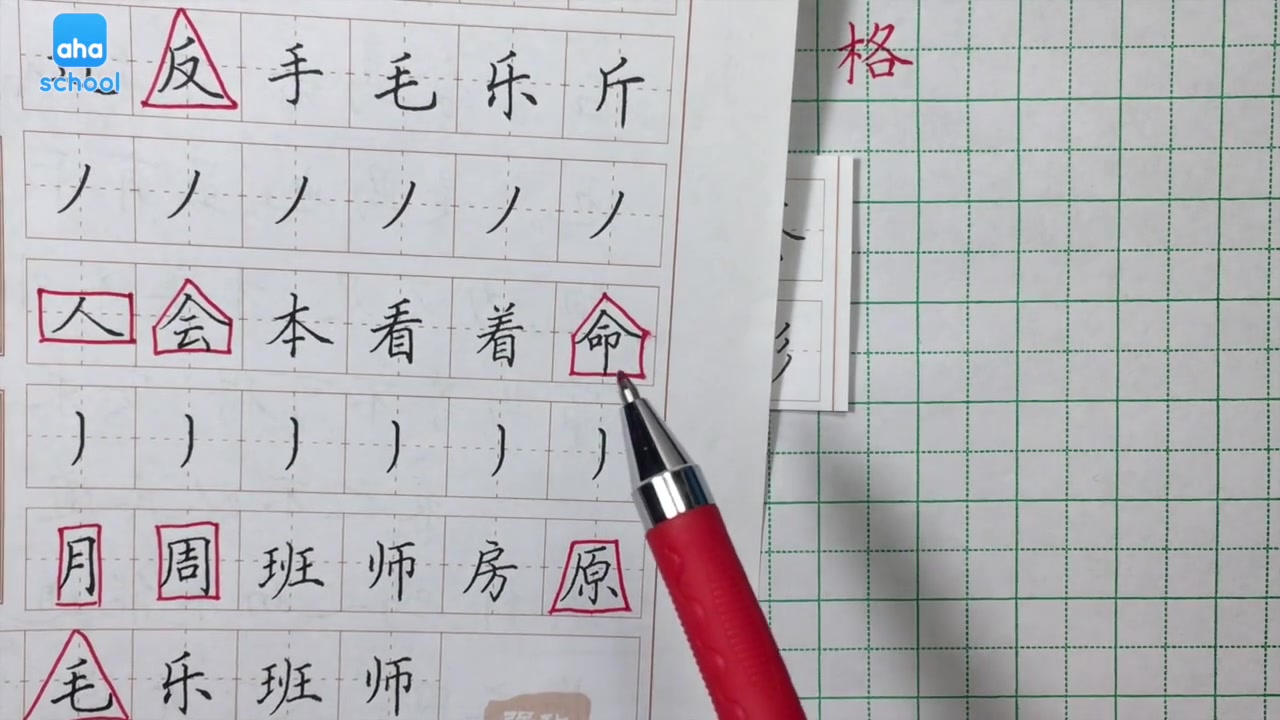 aha
school
反手毛乐斤
格
丿丿丿丿丿丿
人会本看着命
丿丿丿丿丿丿
月周班师房原
毛乐班师